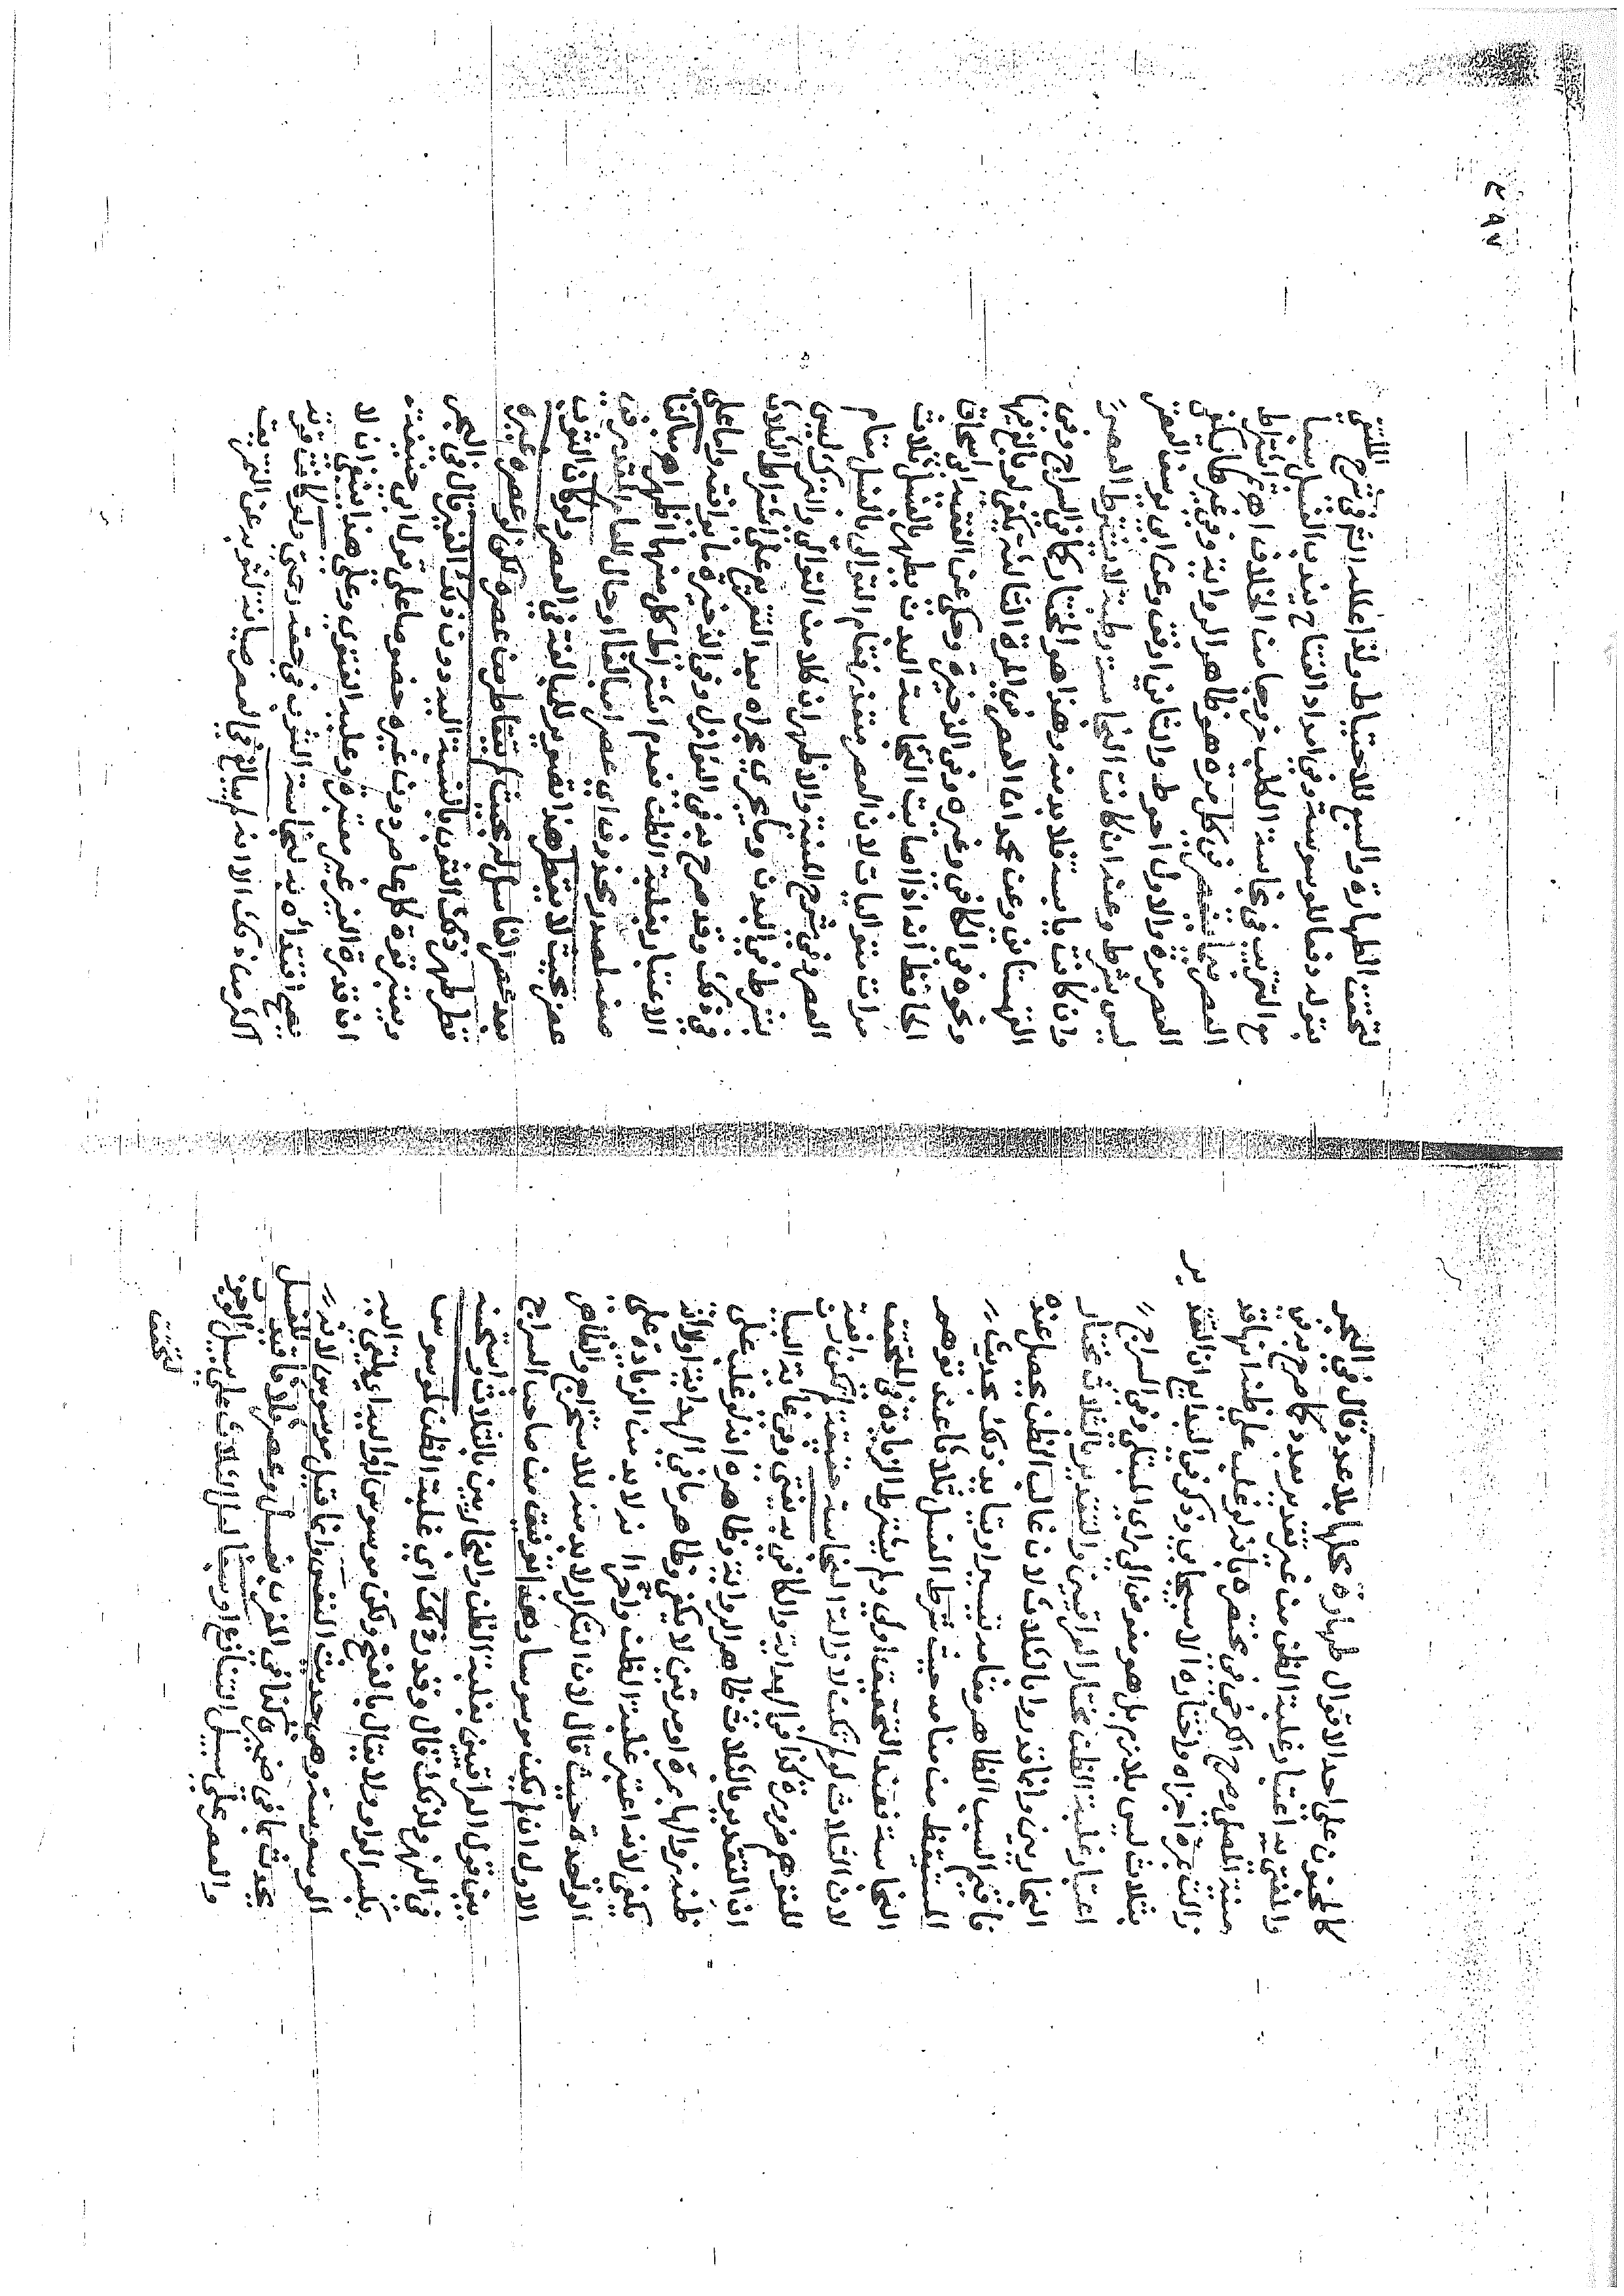 كالمجنون على احد الاقوال طهارة محلها بلا عدد وقال في البحر
والمفتى به اعتبار غلبة الظن من غير تقدير بعدد كما صرح به في
منية المصلي وصرح الكرخي في مختصره بانه لو غلب على ظنه انها قد
زالت بمرة اجزاه واختاره الاسبيجابي وذكر في البدايع ان التقدير
بثلاث ليس بلازم بل هو مفوض الى راي المبتلى وفي السراج
اعتبار غلبة الظن مختار العراقيين والتقدير بالثلاث مختار
البخاريين وانما قدروا بالثلاث لان غالب الظن يحصل عنده
فاقيم السبب الظاهر مقامه تيسيرا ويتايد ذلك بحديث
المستيقظ من منامه حيث شرط الغسل ثلاثا عند توهم
النجاسة فعند التحقق اولى ولم يشترط الزيادة في المتحقق
لان الثلاث لو لم تكن لازالة النجاسة حقيقة لم تكن رافعة
للتوهم ضرورة كذا في الهداية والكافي به يفتى وفي غاية البيا
ان التقدير بالثلاث ظاهر الرواية وظاهره انه لو غلب على
ظنه زوالها بمرة او مرتين لا يكفي وظاهر ما في الهداية اولا انه
يكفي لانه اعتبر غلبة الظن واخرا انه لابد من الزيادة على
الواحدة حيث قال لان التكرار لابد منه للاستخراج والظاهر
الاول ان لم يكن موسوسا وهذا توفيق من صاحب السراج
بين قول العراقيين بغلبة الظن والبخاريين بالثلاث واستحسنه
في النهر ولذلك قال وقدر ذلك اي غلبة الظن لموسوس
بكسر الواو ولا يقال بالفتح ولكن موسوس له او اليه اي يلقى اليه
الوسوسة وهي حديث النفس وانما قيل موسوس لانه
يحدث بما في ضميره كذا في المغرب بغسل وعصر ثلاثا قيد للغسل
والعصر على سبيل التنازع او سبعا بدل الثلاث على سبيل
لتحقق
لتحقق الطهارة والسبع للاحتياط ولذا علله الش في شرح الملتقى
بقوله دفعا للوسوسة وفي امداد الفتاح يندب الغسل سبعا
مع التتريب في نجاسة الكلب خروجا من الخلاف اهـ ثم اشتراط
العصر فيما ينعصر في كل مرة هو ظاهر الرواية وفي غير
العصر مرة والاول احوط والثاني ارفق وعن ابي يوسف العصر
ليس بشرط وعنه ان كانت النجاسة رطبة لا يشترط العصر
وان كانت يابسة فلابد منه وهذا هو المختار كما في السراج وفي
القهستاني وعن محمد ان العصر في المرة الثالثة يكفي
ونحوه في الكافي وغيره وفي الذخيرة وحكى عن الفقيه ابي اسحاق
الحافظ انه اذا اصابت النجاسة البدن يطهر بالغسل ثلاث
مرات متواليات لان العصر متعذر فقام التوالي بالغسل مقام
العصر وفي شرح المنية والاظهر ان كلا من التوالي والترك ليس
بشرط في البدن وما يجري مجراه بعد التفريع على اشتراط الثلاث
في ذلك وقد صرح به في النوازل وفي الذخيرة ما يوافقه واما على
الاعتبار بغلبة الظن فعدم اشتراط كل منهما اظهر اهـ مبالغا
صفة لمصدر محذوف اي عصرا مبالغا او حال للفاعل المقدر في
عصر بحيث لا يقطر هذا تصوير للمبالغة في العصر ولو كان الثوب
بعد عصر الغاسل له بحيث لم يتقاطر من عصره لكن لو عصره غيره
قطر طهر ذلك الثوب بالنسبة اليه دون ذلك الغير قال في البحر
ويعتبر قوة كل عاصر دون غيره خصوصا على قول ابي حنيفة
ان قدرة الغير غير معتبرة وعليه الفتوى وعلى هذا ينبغي ان لا
يصح اقتداؤه به لنجاسة الثوب في حقه رحمتي ولو كانت قوته
اكثر من ذلك الا انه لم يبالغ في العصر صيانة لثوبه عن التخريق